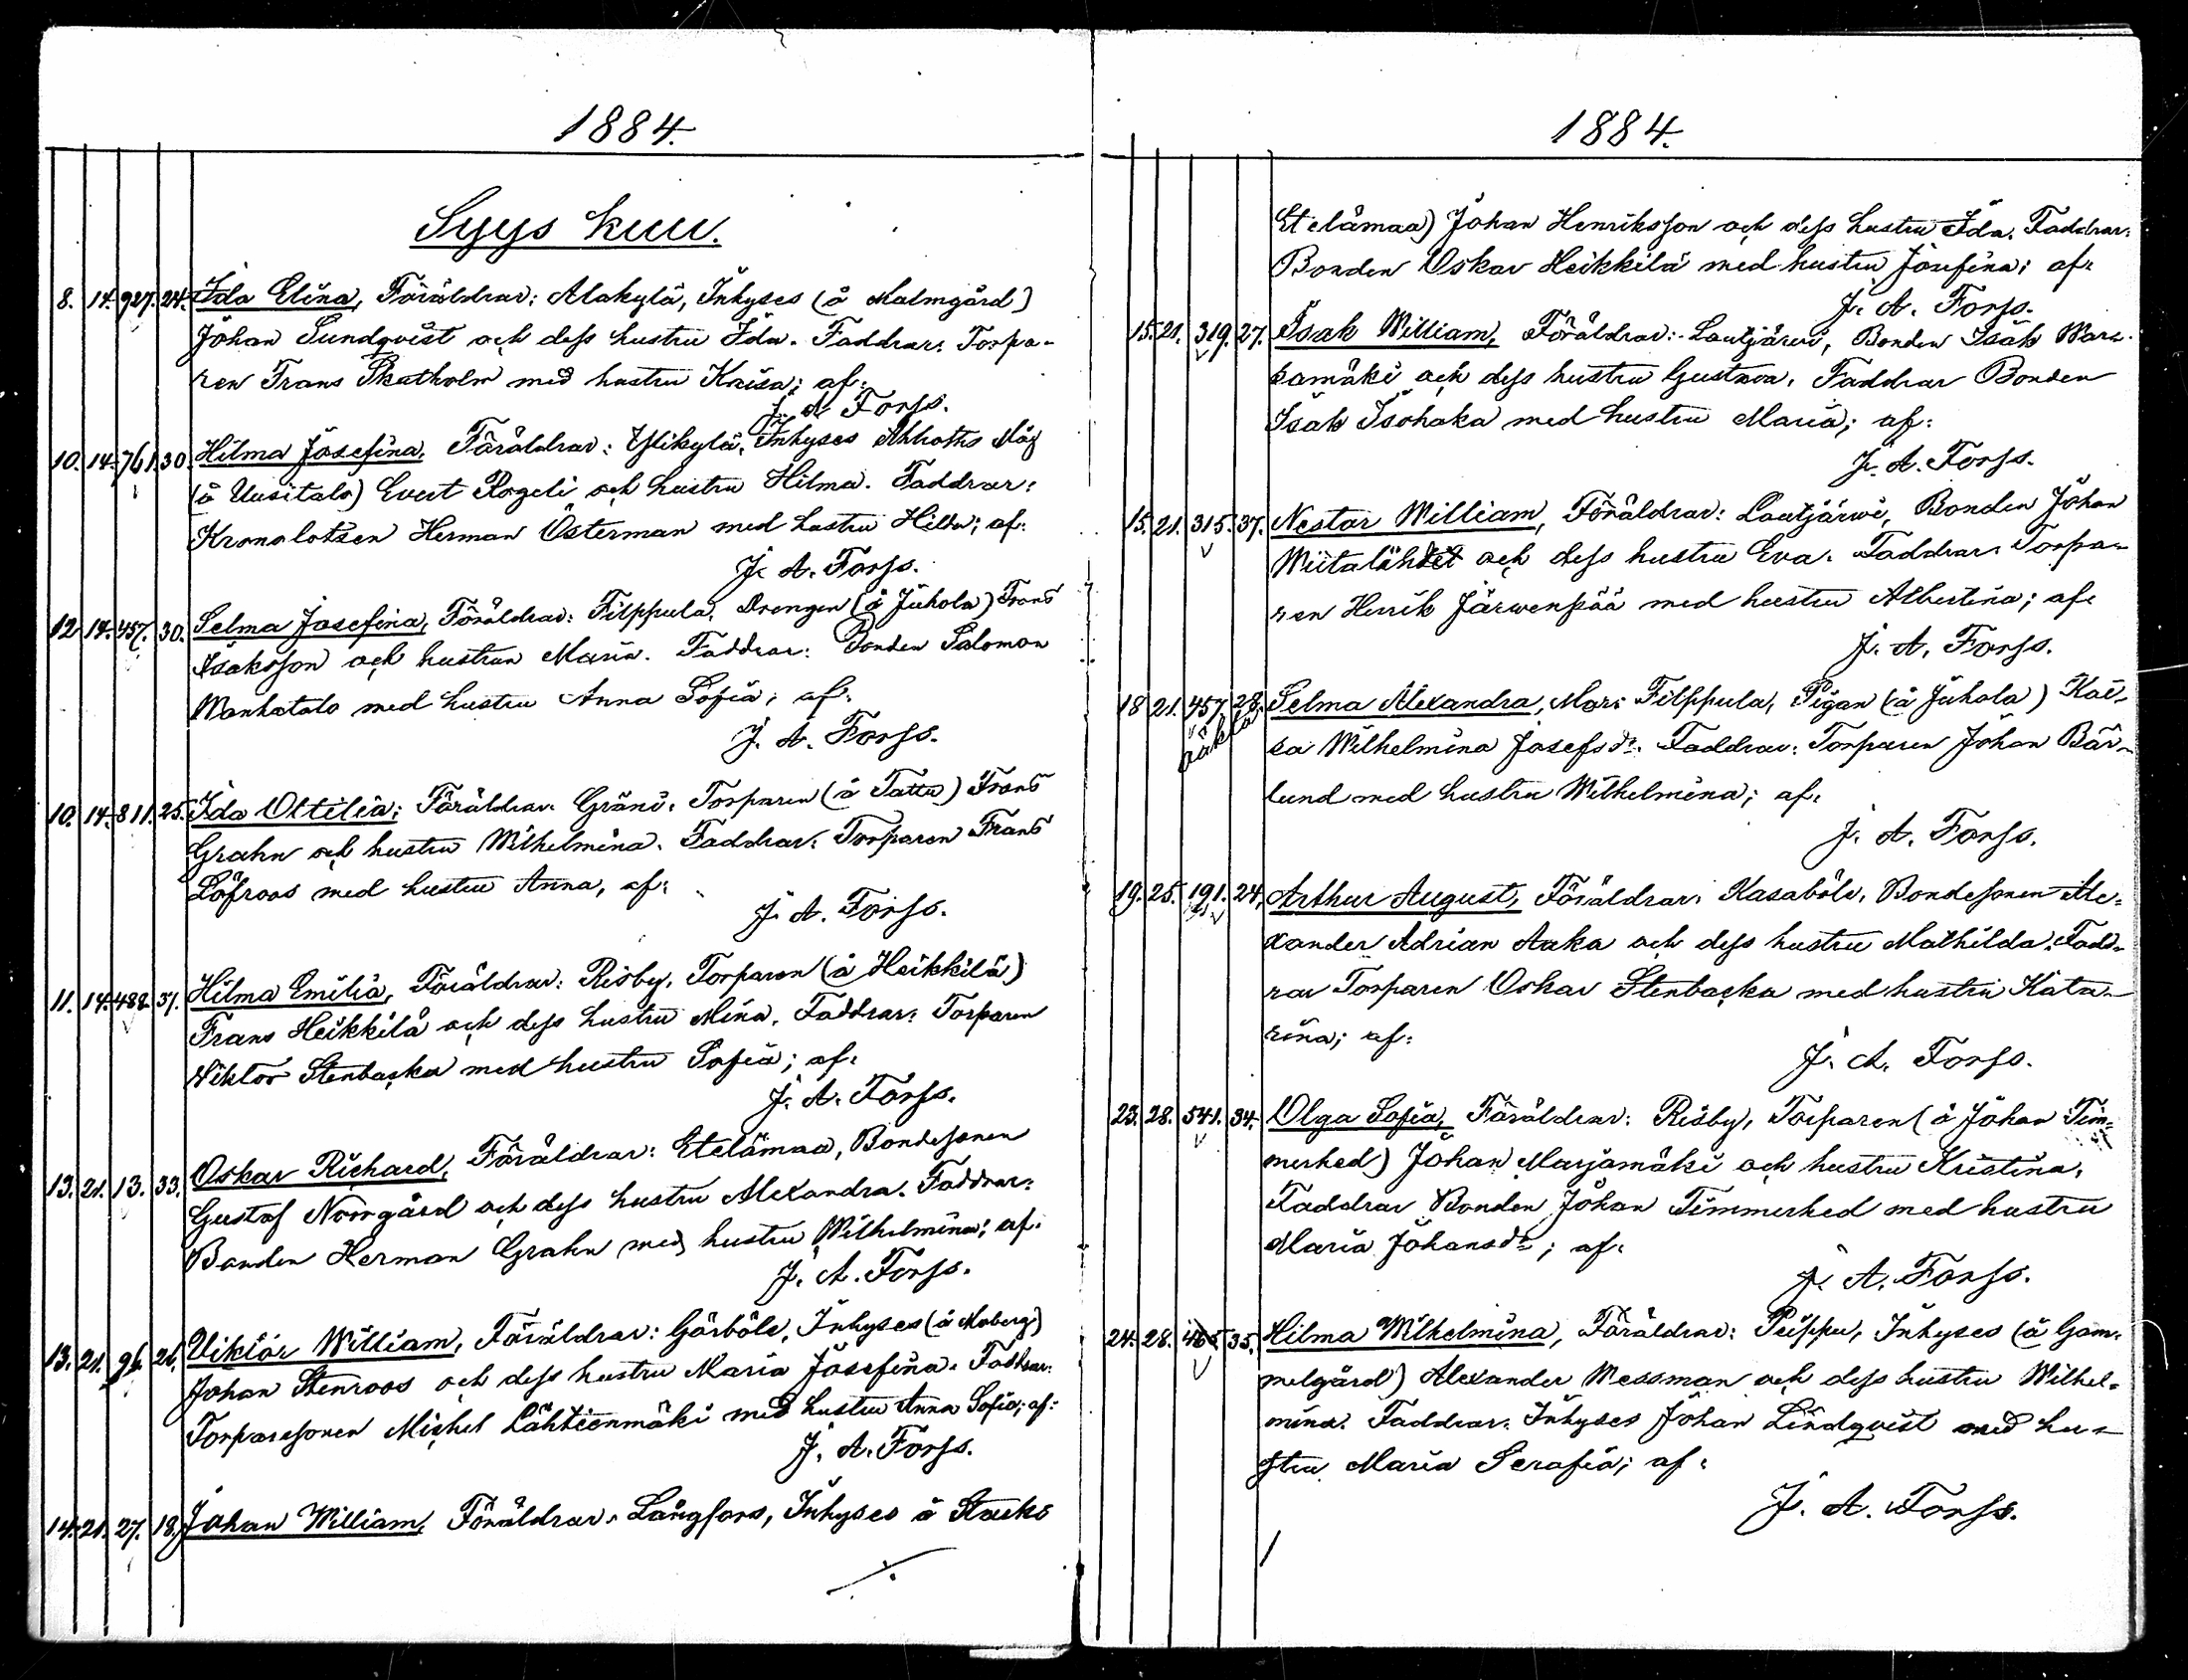 1884.
Syys kuu.
8. 14. 927. 24. Ida Elina, Föräldrar: Alakylä, Inhyses (å Malmgård)
Johan Sundqvist och dess hustru Ida. Faddrar: Torpa-
ren Frans Skatholm med hustru Kaisa; af:
J. A. Forss.
10. 14. 761. 30. Hilma Josefina, Föräldrar: Ylikylä, Inhyses Måg
(å Uusitalo) Evert Rogeli och hustru Hilma. Faddrar:
Kronolotsen Herman Österman med hustru Hilda; af:
J. A. Forss.
12. 14. 457. 30. Selma Josefina, Föräldrar: Filppula, Drengen (å Juhola) Frans
Isaksson och hustrun Maria. Faddrar: Bonden Salomon
Wanhatalo med hustru Anna Sofia; af:
J. A. Forss.
10. 14. 811. 25. Ida Ottilia; Föräldrar: Gräni, Torparen (å Tattu) Frans
Grahn och hustru Wilhelmina. Faddrar: Torparen Frans
Löfroos med hustru Anna, af:
J. A. Forss.
11. 14. 488. 31. Hilma Emilia, Föräldrar: Risby, Torparen (å Heikkilä)
Frans Heikkilä och dess hustru Mina. Faddrar: Torparen
Viktor Stenbacka med hustru Sofia; af:
J. A. Forss.
13. 21. 13. 33. Oskar Richard, Föräldrar: Etelämaa, Bondesonen
Gustaf Norrgård och dess hustru Alexandra. Faddrar:
Bonden Herman Grahn med hustru Wilhelmina; af:
J. A. Forss.
13. 21. 96. 26. Viktor William, Föräldrar: Görböle, Inhyses (å Moberg)
Johan Stenroos och dess hustru Maria Josefina. Faddrar:
Torparesonen Michel Lähteenmäki med hustru Anna Sofia; af:
J. A. Forss.
14. 21. 27. 18. Johan William, Föräldrar: Långfors, Inhyses å
1884.
Etelämaa) Johan Henriksson och dess hustru Ida. Faddrar:
Bonden Oskar Heikkilä med hustru Josefina; af:
J. A. Forss.
15. 21. 319. 27. Isak William, Föräldrar: Lautjärwi, Bonden Isak Ware-
samäki och dess hustru Gustava. Faddrar Bonden
Isak Isohaka med hustru Maria; af:
J. A. Forss.
15. 21. 315. 37. Nestor William, Föräldrar: Lautjärwi, Bonden Johan
Wiitalähdet och dess hustru Eva. Faddrar: Torpa-
ren Henrik Järwenpää med hustru Albertina; af:
J. A. Forss.
18. 21. 457. 28. Selma Alexandra, Mor: Filppula, Pigan (å Juhola) Kai-
sa Wilhelmina Josefsdr. Faddrar: Torparen Johan Bär-
lund med hustru Wilhelmina; af:
J. A. Forss.
19. 25. 191. 24. Arthur August, Föräldrar: Kasaböle, Bondesonen Ale-
xander Adrian Aaka och dess hustru Mathilda. Fadd-
rar Torparen Oskar Stenbacka med hustru Kata-
rina; af:
J. A. Forss.
23. 28. 541. 34. Olga Sofia, Föräldrar: Risby, Torparen (å Johan Tim-
merhed) Johan Marjamäki och hustru Kristina.
Faddrar Bonden Johan Timmerhed med hustru
Maria Johansdr; af:
J. A. Forss.
24. 28. 465 35. Hilma Wilhelmina, Föräldrar: Piippu, Inhyses (å Gam-
melgård) Alexander Messman och dess hustru Wilhel-
mina. Faddrar: Inhyses Johan Lindqvist med hu-
stru Maria Serafia; af:
J. A. Forss.